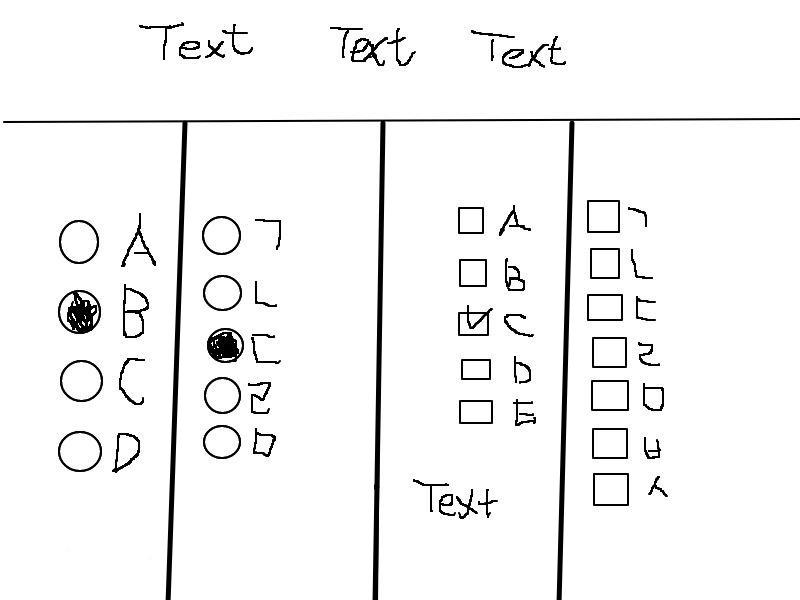 Text Text Text
A
B
C
D
ㄱ
ㄴ
ㄷ
ㄹ
ㅁ
A
B
C
D
E
Text
ㄱ
ㄴ
ㄷ
ㄹ
ㅁ
ㅂ
ㅅ